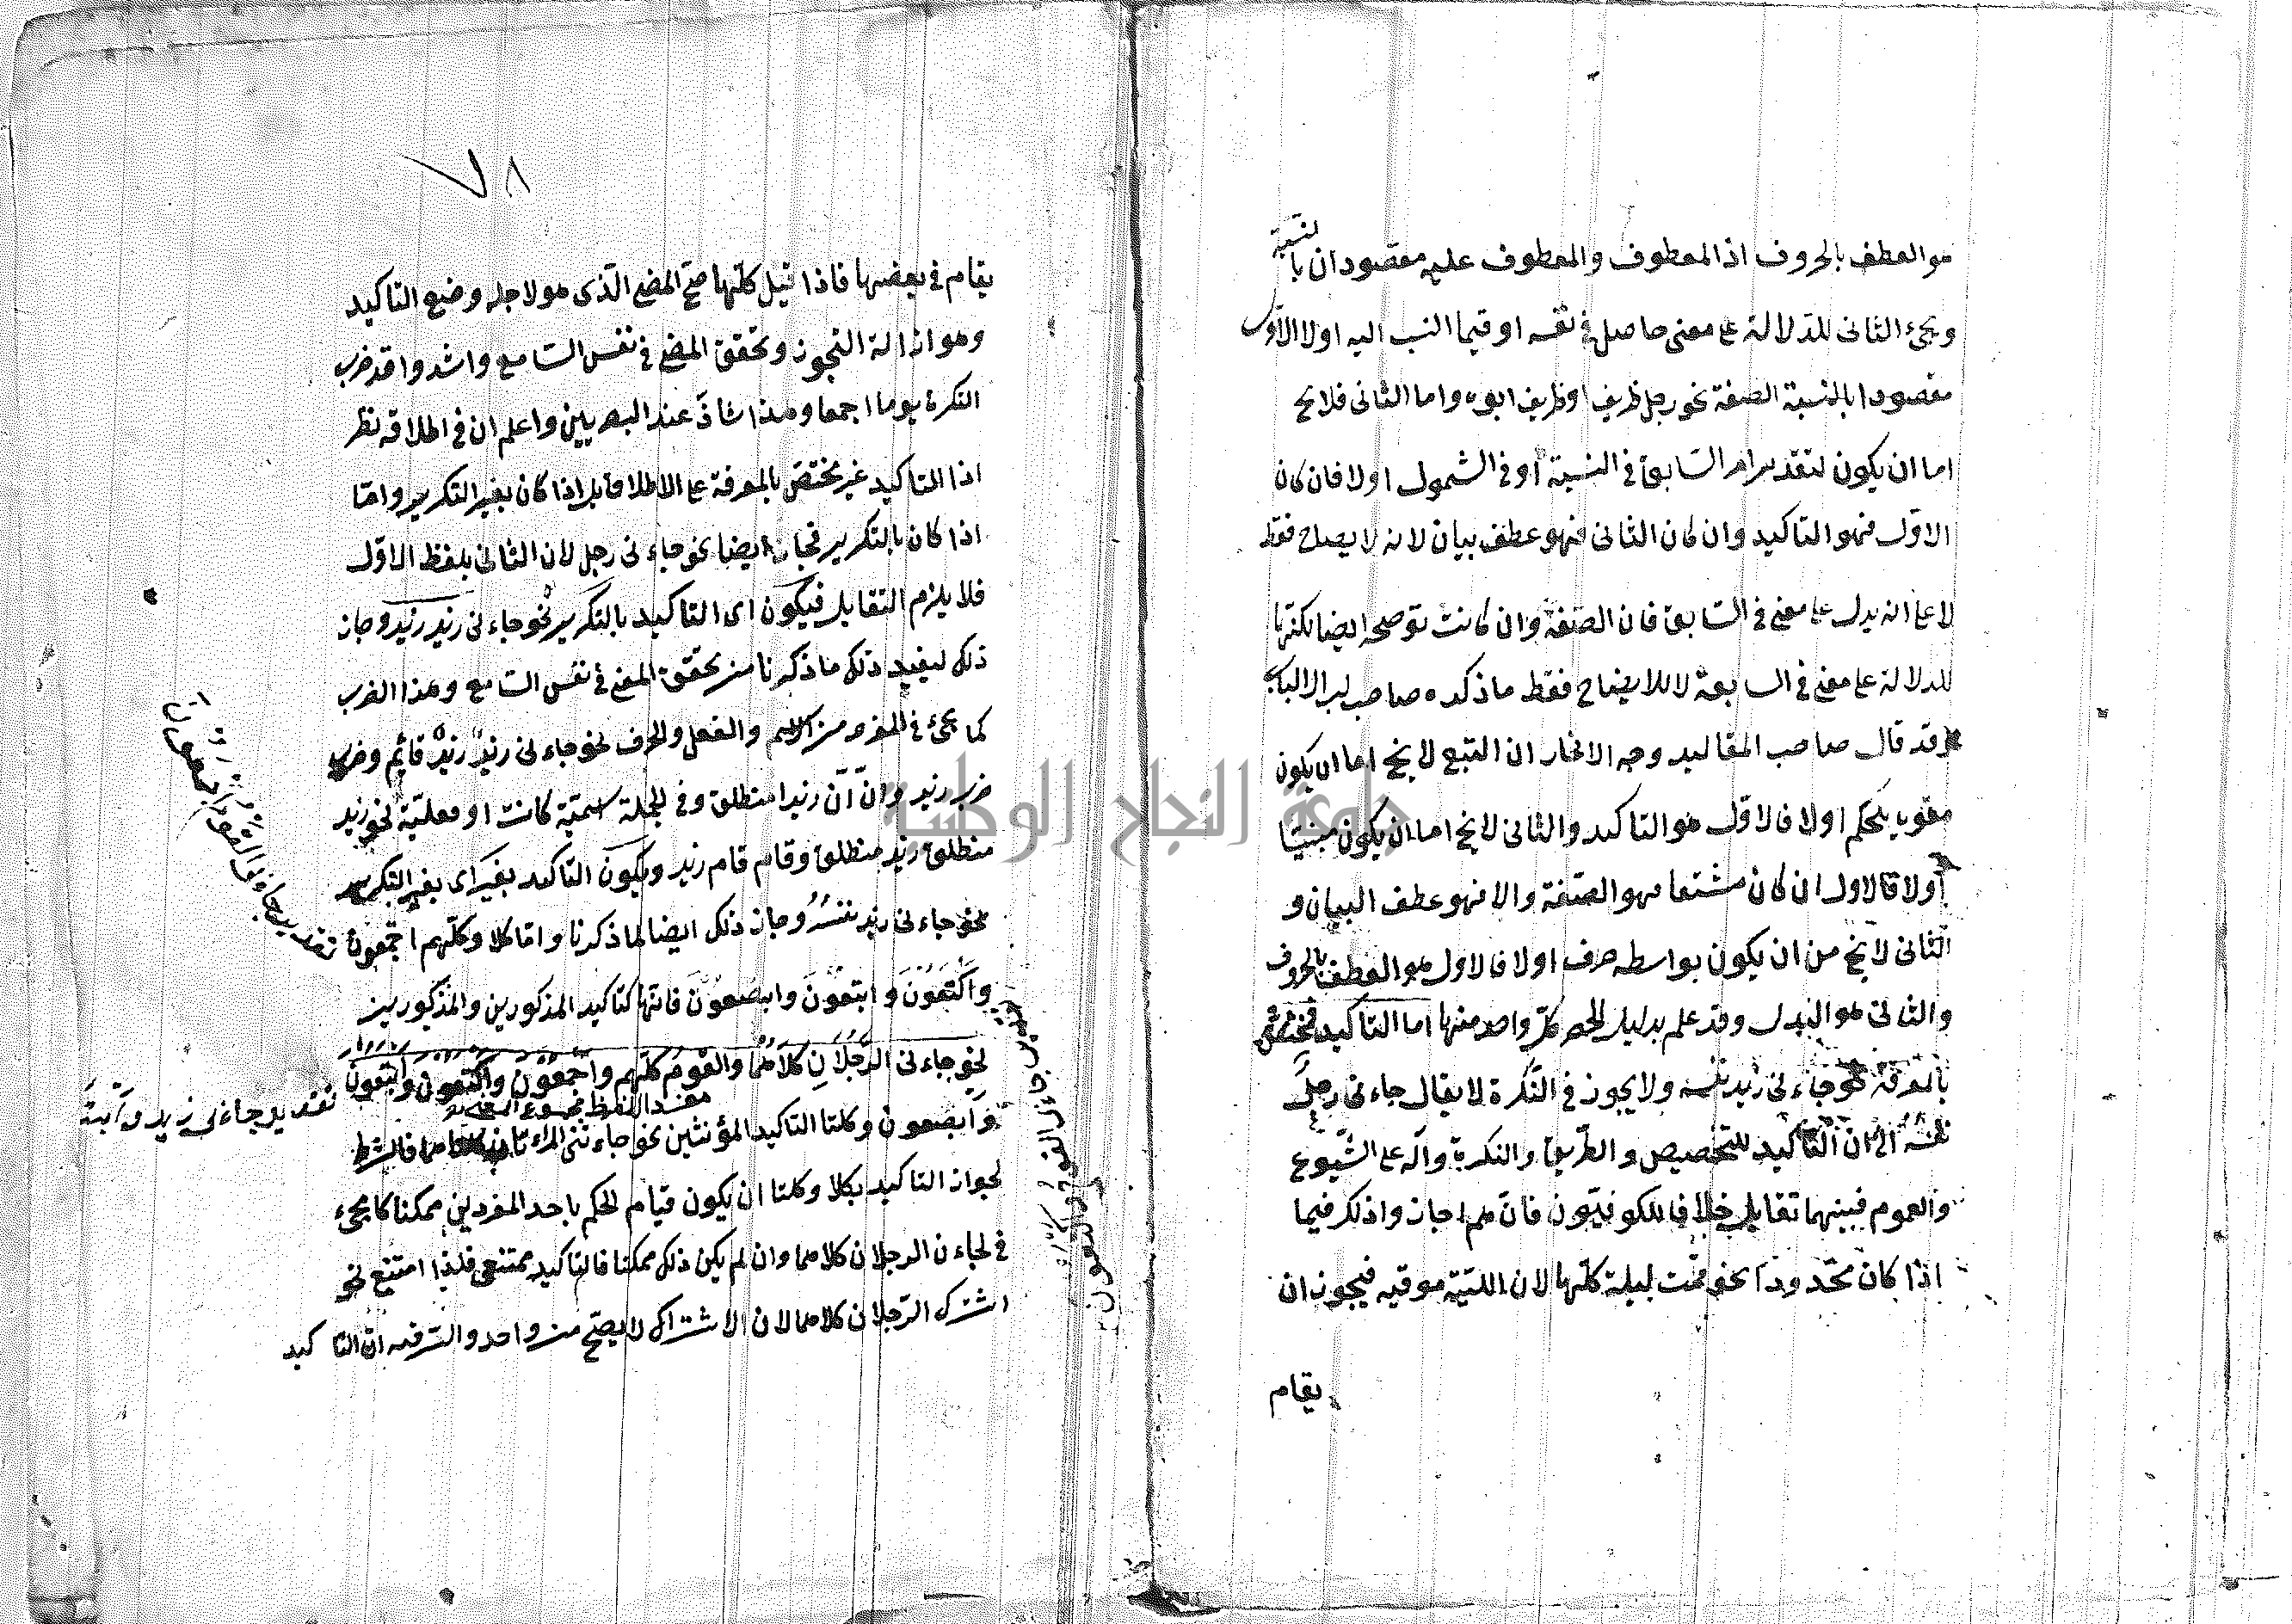 هو العطف بالحروف اذ المعطوف والمعطوف عليه مقصودان بالنسبة
ويجئ الثانى للدلالة على معنى حاصل فى نفسه او فيما النسب اليه اولا الاول
مقصودا بالنسبة الصفة نحو رجل ظريف او ظريف ابوه واما الثانى فلا يخ
اما ان يكون لتقدير امر السابق فى النسبة او فى الشمول اولا فان كان
الاول فهو التاكيد وان كان الثانى فهو عطف بيان لانه لا يصلح فقط
لا على انه يدل على معنى فى السابق فان الصفة وان كانت توضحه ايضا لكنها
للدلالة على معنى فى السابقة لا للايضاح فقط ما ذكره صاحب لب الالباب
وقد قال صاحب المقاليد وجه الانحصار ان التبع لا يخ اما ان يكون
مقويه بحكم اولا فالاول هو التاكيد والثانى لا يخ اما ان يكون مبنيا
اولا فالاول ان كان مشتقا فهو الصفة والا فهو عطف البيان و
الثانى لا يخ من ان يكون بواسطه حرف اولا فالاول هو العطف بالحروف
والثانى هو البدل وقد علم بدليل الحصر كل واحد منها اما التاكيد فمختص
بالمعرفة نحو جاء نى زيد نفسه ولا يجوز فى النكرة لا يقال جاء نى رجل
نفسه لان التاكيد للتخصيص و الطريق والنكرة دالة على الشيوع
والعموم فبينهما تقابل خلافا للكوفيون فان هم اجاز واذلك فيما
اذا كان محدودا نحو قمت ليلة كلها لان الليلة موقيه فيجوز ان
يقام
٧٨
يقام فى بعضها فاذا قيل كلها صح المضى الذى هو لاجله وضع التاكيد
وهو ازالة التجوز وتحقق المعنى فى نفس السامع وانشدوا قد ضرب
النكرة يوما اجمعا وهذا شاذ عند البصريين واعلم ان فى اطلاقه نظر
اذ التاكيد غير مختص بالمعرفة على الاطلاق بل اذا كان بغير التكرير واما
اذا كان بالتكرير فجاز ايضا نحو جاء نى رجل لان الثانى بلفظ الاول
فلا يلزم التقابل فيكون اى التاكيد بالتكرير نحو جاء نى زيد زيد وجاز
ذلك ليفيد ذلك ما ذكرنا من تحقق المعنى فى نفس السامع وهذا الضرب
كما يجئ فى المفرد من الاسم والفعل والحرف نحو جاء نى زيد زيد قائم وضرب
ضرب زيد وان ان زيدا منطلق وفى الجملة اسمية كانت او فعلية نحو زيد
منطلق زيد منطلق وقام قام زيد ويكون التاكيد بغير اى بغير التكرير
نحو جاء نى زيد نفسه وجاز ذلك ايضا لما ذكرنا واما كلا وكلهم اجمعون
واكتعون وابتعون وابصعون فانها كتاكيد المذكورين والمذكورين
نحو جاء نى الرجلان كلاهما والقوم كلهم واجمعون واكتعون وابتعون
وابصعون وكلتا التاكيد المؤنثين نحو جاء تنى المراءتان كلتاهما فالشرط
لجواز التاكيد بكلا وكلتا ان يكون قيام الحكم باحد المفردين ممكنا كا يجئ
فى لجاءن الرجلان كلاهما وان لم يكن ذلك ممكنا فالتاكيد ممتنع فلذا امتنع نحو
اشترك الرجلان كلاهما لان الاشتراك لا يصح من واحد والسرفيه ان التاكيد
تقدير جاء نى القوم ابصعون
تقدير جاء نى زيد وابنة
جاء القوم ابتعون